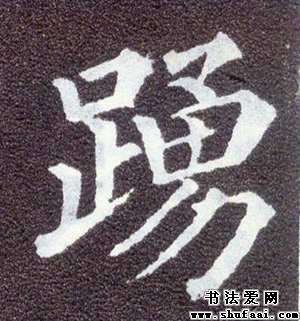 踴
书法爱网
www.shufaai.com